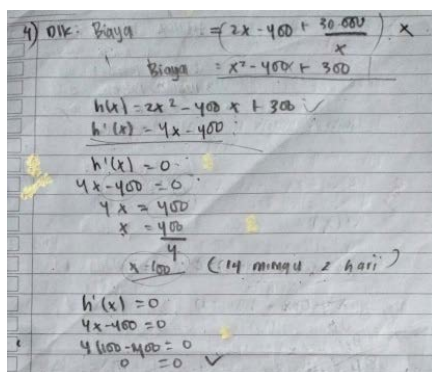 4) Dik: Biaya = (2x - 400 + 30.000/x) . x
Biaya = x² - 400x + 300
h(x) = 2x² - 400x + 300 ✓
h'(x) = 4x - 400
h'(x) = 0
4x - 400 = 0
4x = 400
x = 400/4
x = 100 (14 minggu 2 hari)
h'(x) = 0
4x - 400 = 0
4(100 - 400 = 0
0 = 0 ✓